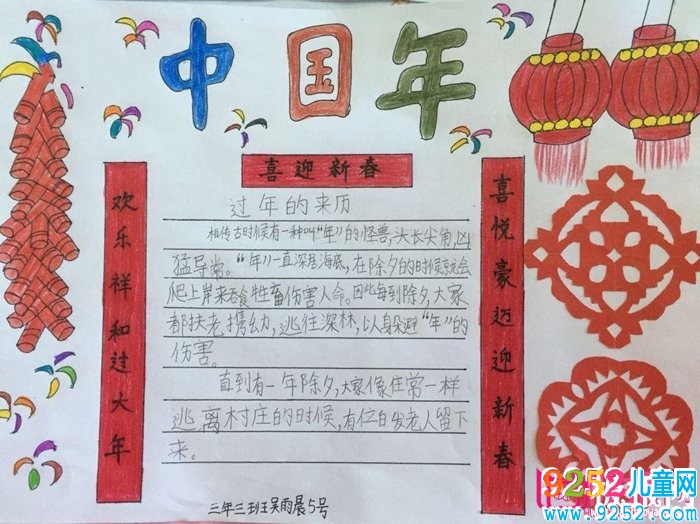 中国年
喜迎新春
欢乐祥和过大年
喜悦豪迈迎新春
过年的来历
相传古时候有一种叫“年”的怪兽,头长尖角,凶
猛导常。“年”一直深居海底,在除夕的时候就会
爬上岸来吞食牲畜伤害人命。因此每到除夕,大家
都扶老携幼,逃往深林,以躲避“年”的
伤害。
直到有一年除夕,大家像往常一样
逃离村庄的时候,有位白发老人留下
来。
三年三班吴雨晨5号
9252儿童网
www.9252.com